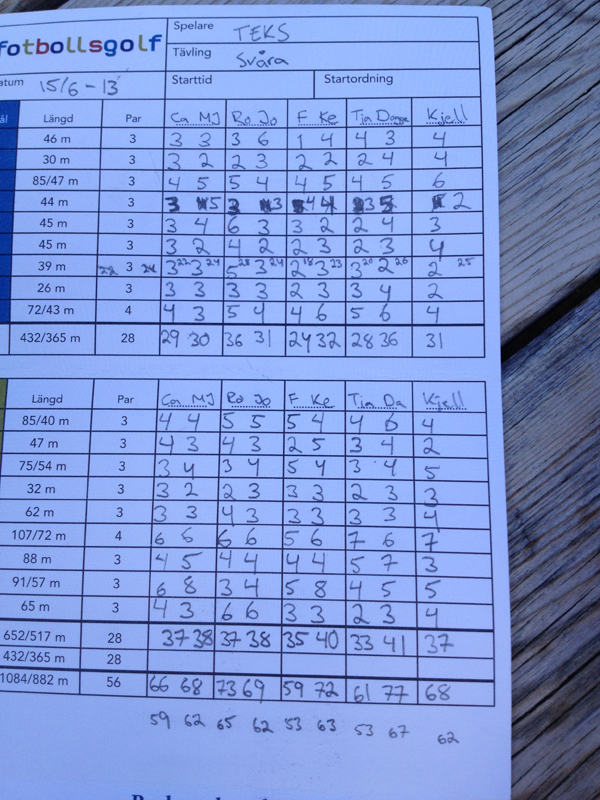 fotbollsgolf
Spelare TEKS
Tävling Svåra
atum 15/6 - 13 Starttid Startordning
ål Längd Par Ca MJ Ro Jo F Ke Tia Kjell
46 m 3 3 3 3 6 1 4 4 3 4
30 m 3 3 2 2 3 2 2 2 4 4
85/47 m 3 4 5 5 4 4 5 4 5 6
44 m 3 3 5 3 3 4 4 3 5 2
45 m 3 3 4 6 3 3 2 2 4 3
45 m 3 3 2 4 2 2 3 2 3 4
39 m 22 3 24 3 22 3 24 5 28 3 24 2 18 3 23 3 20 2 26 2 25
26 m 3 3 3 3 3 2 3 3 4 2
72/43 m 4 4 3 5 4 4 6 5 6 4
432/365 m 28 29 30 36 31 24 32 28 36 31
Längd Par Ca MJ Ro Jo F Ke Tia Da Kjell
85/40 m 3 4 4 5 5 5 4 4 6 4
47 m 3 4 3 4 3 2 5 3 4 2
75/54 m 3 3 4 3 4 5 4 3 4 5
32 m 3 3 2 2 3 3 3 2 3 3
62 m 3 3 3 4 3 3 3 3 3 4
107/72 m 4 6 6 6 6 5 6 7 6 7
88 m 3 4 5 4 4 4 4 5 7 3
91/57 m 3 6 8 3 4 5 8 4 5 5
65 m 3 4 3 6 6 3 3 2 3 4
652/517 m 28 37 38 37 38 35 40 33 41 37
432/365 m 28
1084/882 m 56 66 68 73 69 59 72 61 77 68
59 62 65 62 53 63 53 67 62